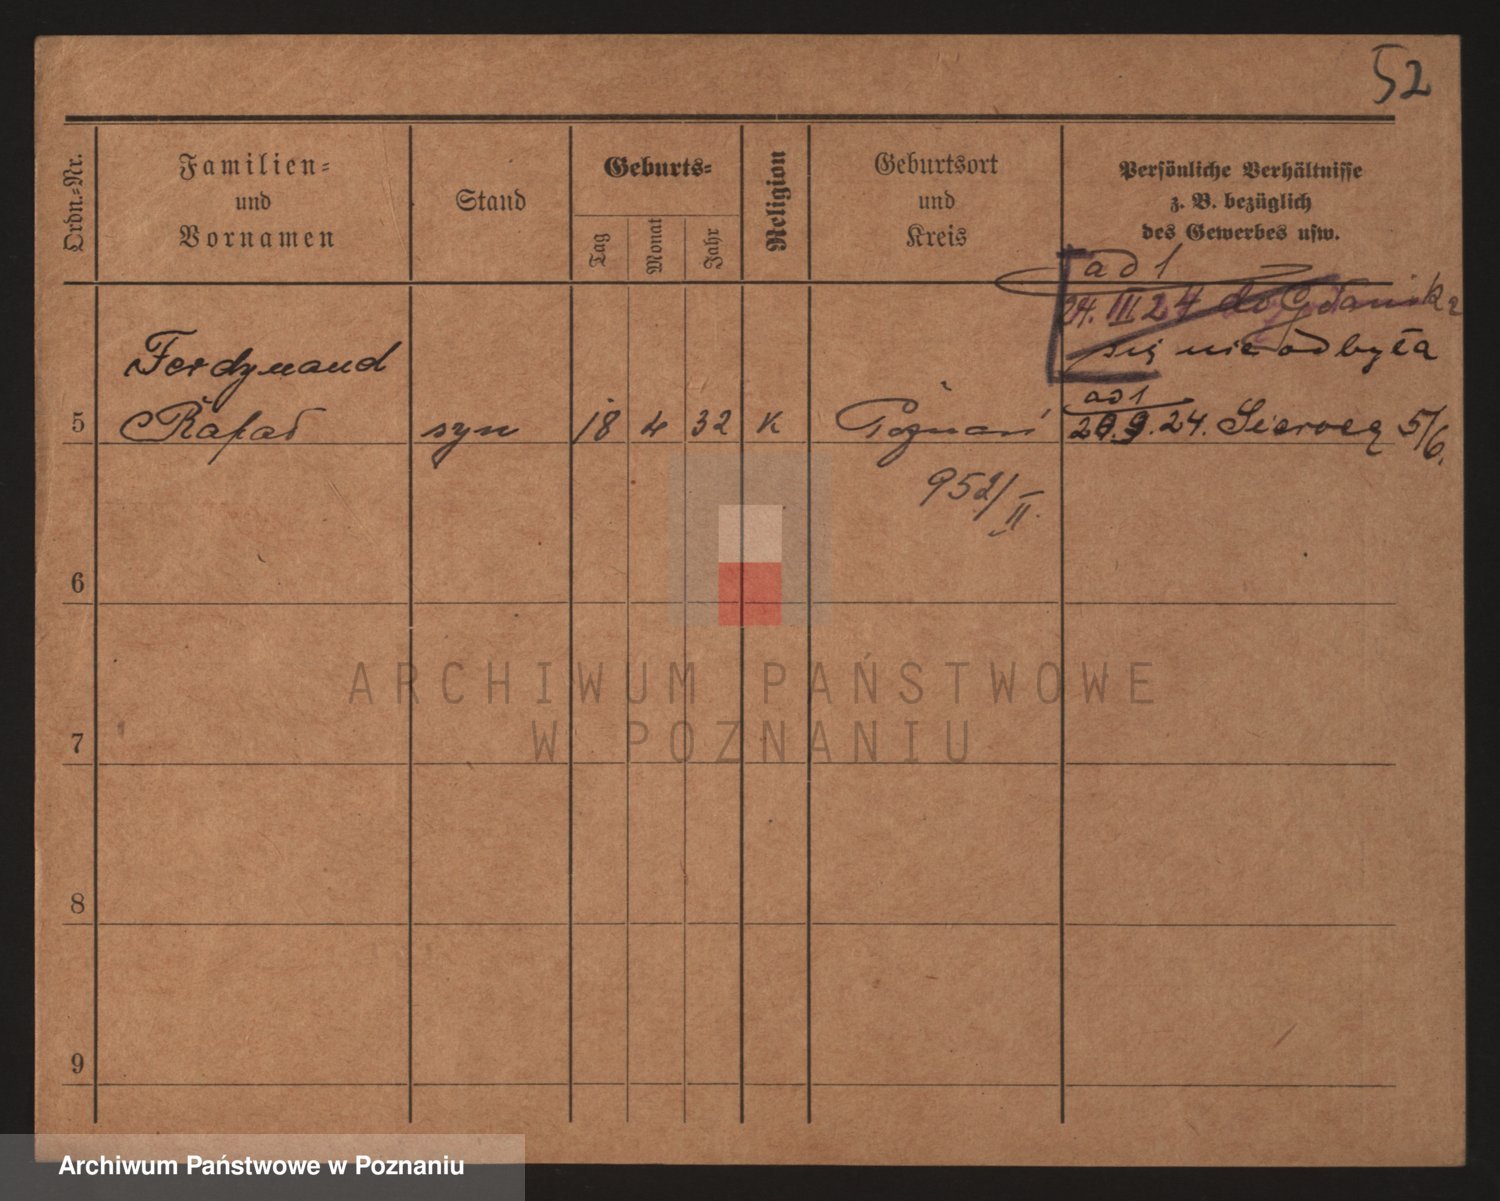 52
Ordn.-Nr.
Familien-
und
Vornamen
Stand
Geburts-
Tag
Monat
Jahr
Religion
Geburtsort
und
Kreis
Persönliche Verhältnisse
z. B. bezüglich
des Gewerbes usw.
ad 1
24. III 24 do Gdańska
się nie odbyła
Ferdynand
ad 1
5 Rafał syn 18 4 32 K Poznań 20.9.24. 5/6.
952/II.
6
7
8
9
ARCHIWUM PAŃSTWOWE
W POZNANIU
Archiwum Państwowe w Poznaniu